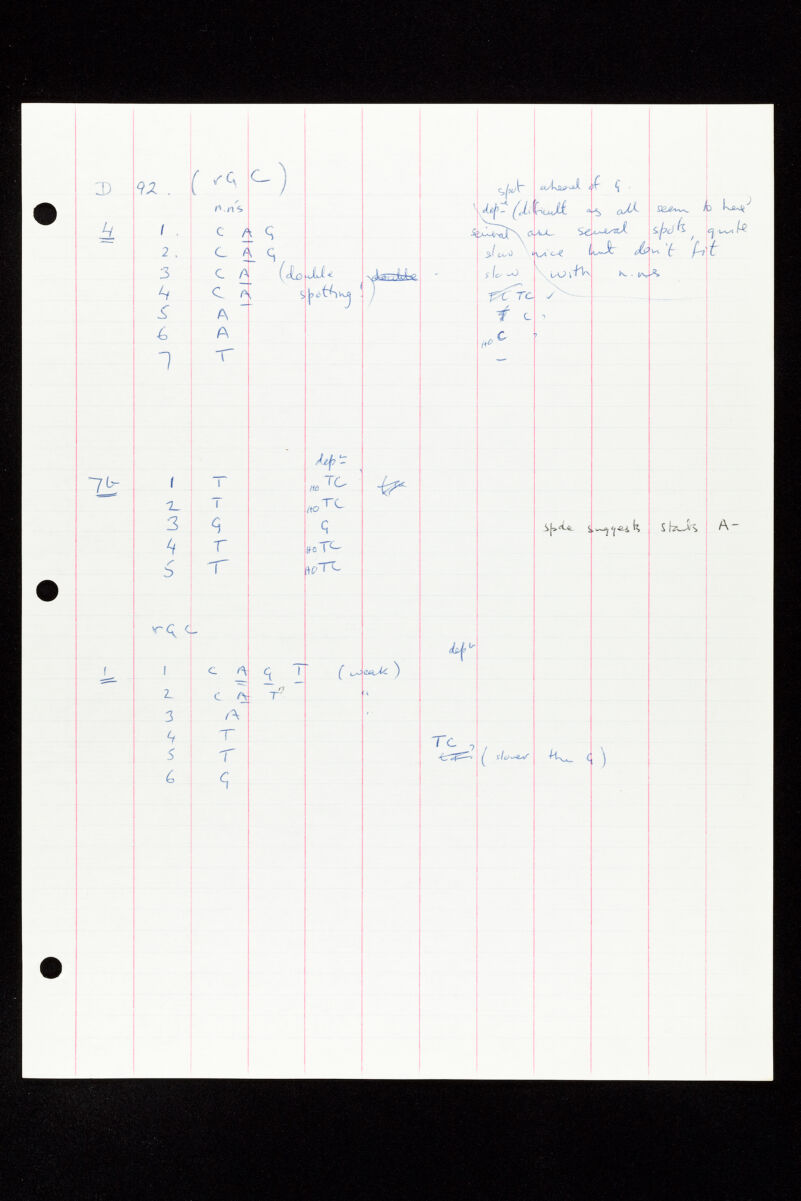 D 92. (rGC)
spot ahead of G.
n.n's
depn (difficult as all seem to have)
4 1. C A G several are several spots, quite
2. C A G slow nice but don't fit
3 C A (double slow with n.ns
4 C A spotting!) TC ✓
5 A C ?
6 A HO C ?
7 T –
depn
7b 1 T HO TC
2 T HO TC
3 G G spde suggests starts A-
4 T HO TC
5 T HO TC
rGC
depn
1 1 C A G T (weak)
2 C A T? "
3 A "
4 T TC
5 T (slower the G)
6 G